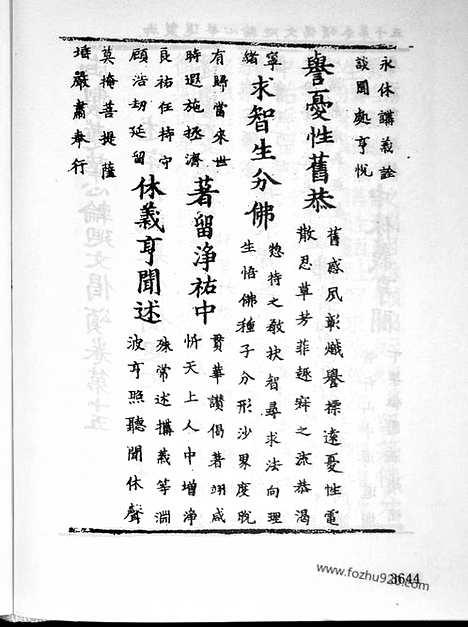 永休講義詮
談聞處亨悅
譽憂性舊恭
舊惑夙彰熾譽摽遠憂性電
散忍草芳菲趣寂之流恭渴
寧
緒
求智生分佛
惣持之敎扶智尋求法向理
生悟佛種子分形沙界度脫
有歸當來世
時遐施拯濟
著留淨祐中
貫華讚偈著翊咸
忻天上人中增淨
良祐任持守
顧浩劫延留
休義亨聞述
殊常述講義等淵
波亨照聽聞休聲
莫掩菩提薩
埵嚴肅奉行
3644
www.fozhu920.com